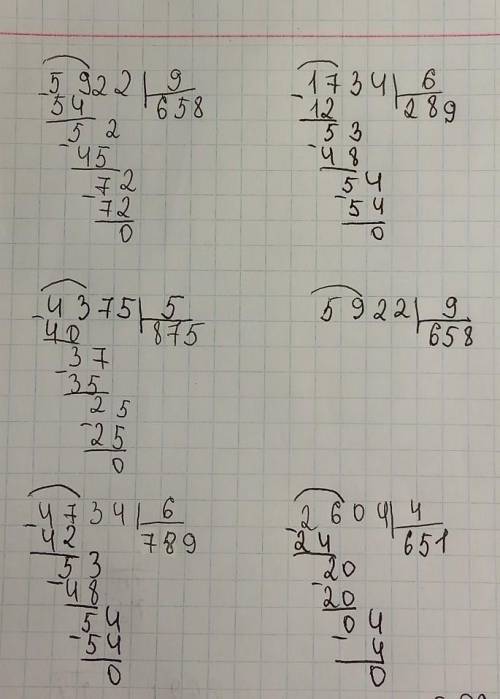 5922 | 9
658
- 54
52
- 45
72
- 72
0
1734 | 6
289
- 12
53
- 48
54
- 54
0
4375 | 5
875
- 40
37
- 35
25
- 25
0
5922 | 9
658
4734 | 6
789
- 42
53
- 48
54
- 54
0
2604 | 4
651
- 24
20
- 20
04
- 4
0